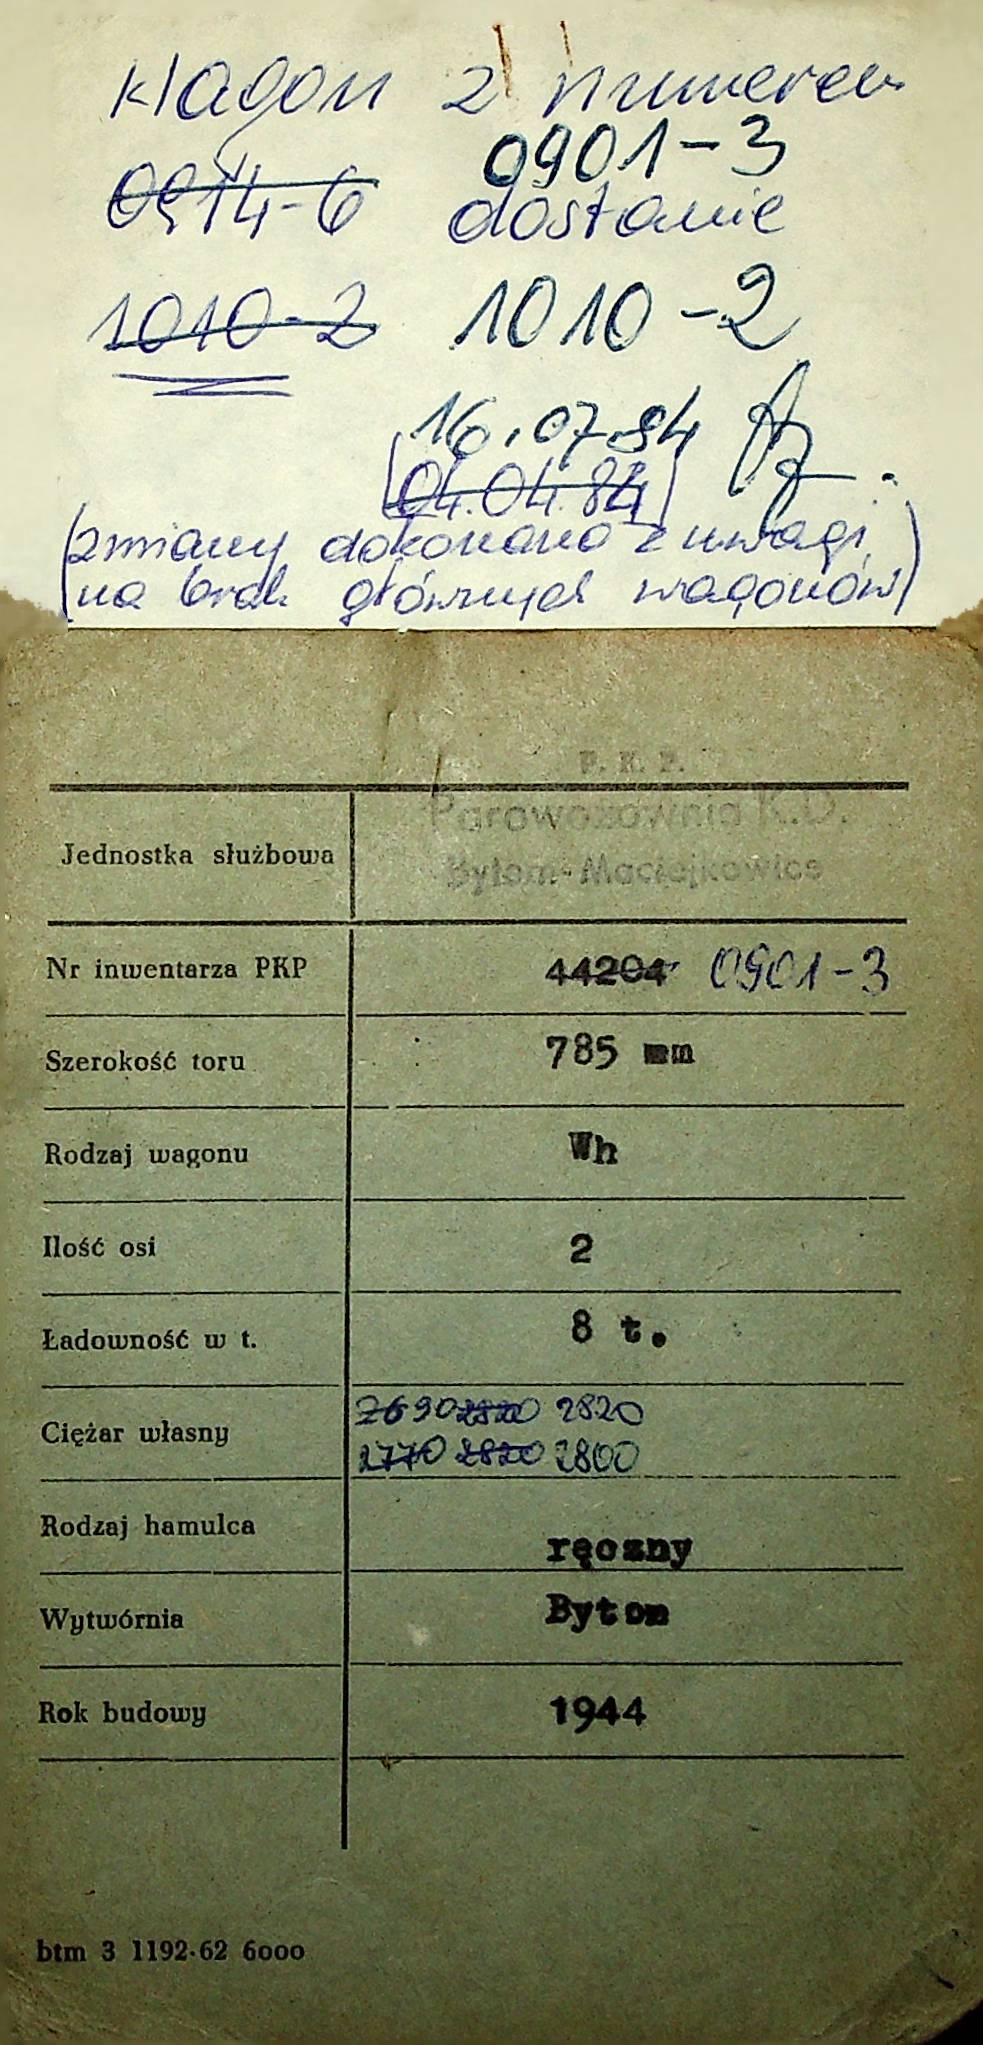 Wagon z numerem
0914-6 0901-3
dostanie
1010-2 1010-2
16.07.84
(04.04.84)
(zmiany dokonano z uwagi
na brak głównych wagonów)
P. K. P.
Parowozownia K.D.
Bytom-Maciejkowice
Jednostka służbowa
Nr inwentarza PKP 44204 0901-3
Szerokość toru 785 mm
Rodzaj wagonu Wh
Ilość osi 2
Ładowność w t. 8 t.
Ciężar własny 2690 2820 2820
2770 2820 2800
Rodzaj hamulca ręczny
Wytwórnia Bytom
Rok budowy 1944
btm 3 1192-62 6000